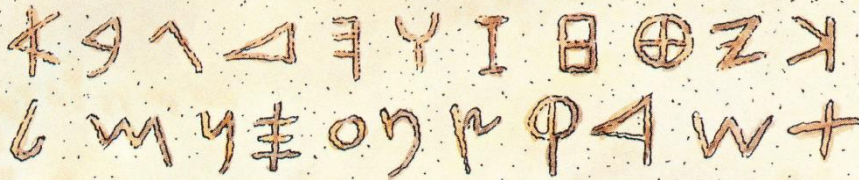 𐤀𐤁𐤂𐤃𐤄𐤅𐤆𐤇𐤈𐤉𐤊
𐤋𐤌𐤍𐤎𐤏𐤐𐤑𐤒𐤓𐤔𐤕